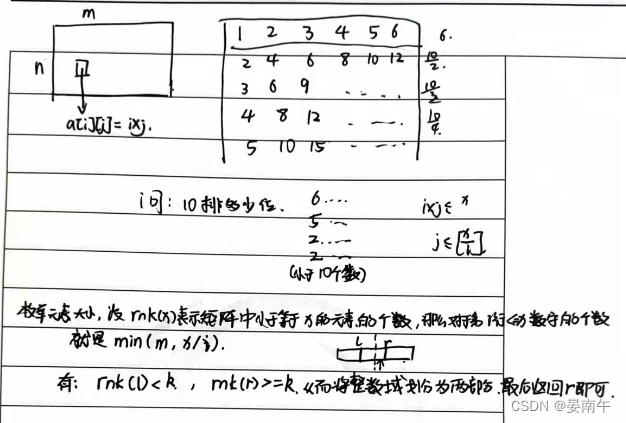 m
n
a[i][j]=ixj.
1 2 3 4 5 6 6.
2 4 6 8 10 12 10/2.
3 6 9 ..... 10/3
4 8 12 ..... 10/4.
5 10 15 .....
问: 10排多少位.
6....
5 ...
2.....
2 ...
(小于10个数)
ixj≤x
j≤[x/i]
l r
元素大小, 设rnk(x)表示矩阵中小于等于x的元素的个数, 那么对于第i行<=x数字的个数
就是min(m, x/i).
有: rnk(l)<k, rnk(r)>=k. 从而将整数域划分为两部分. 最后返回r即可.
CSDN @晏南午